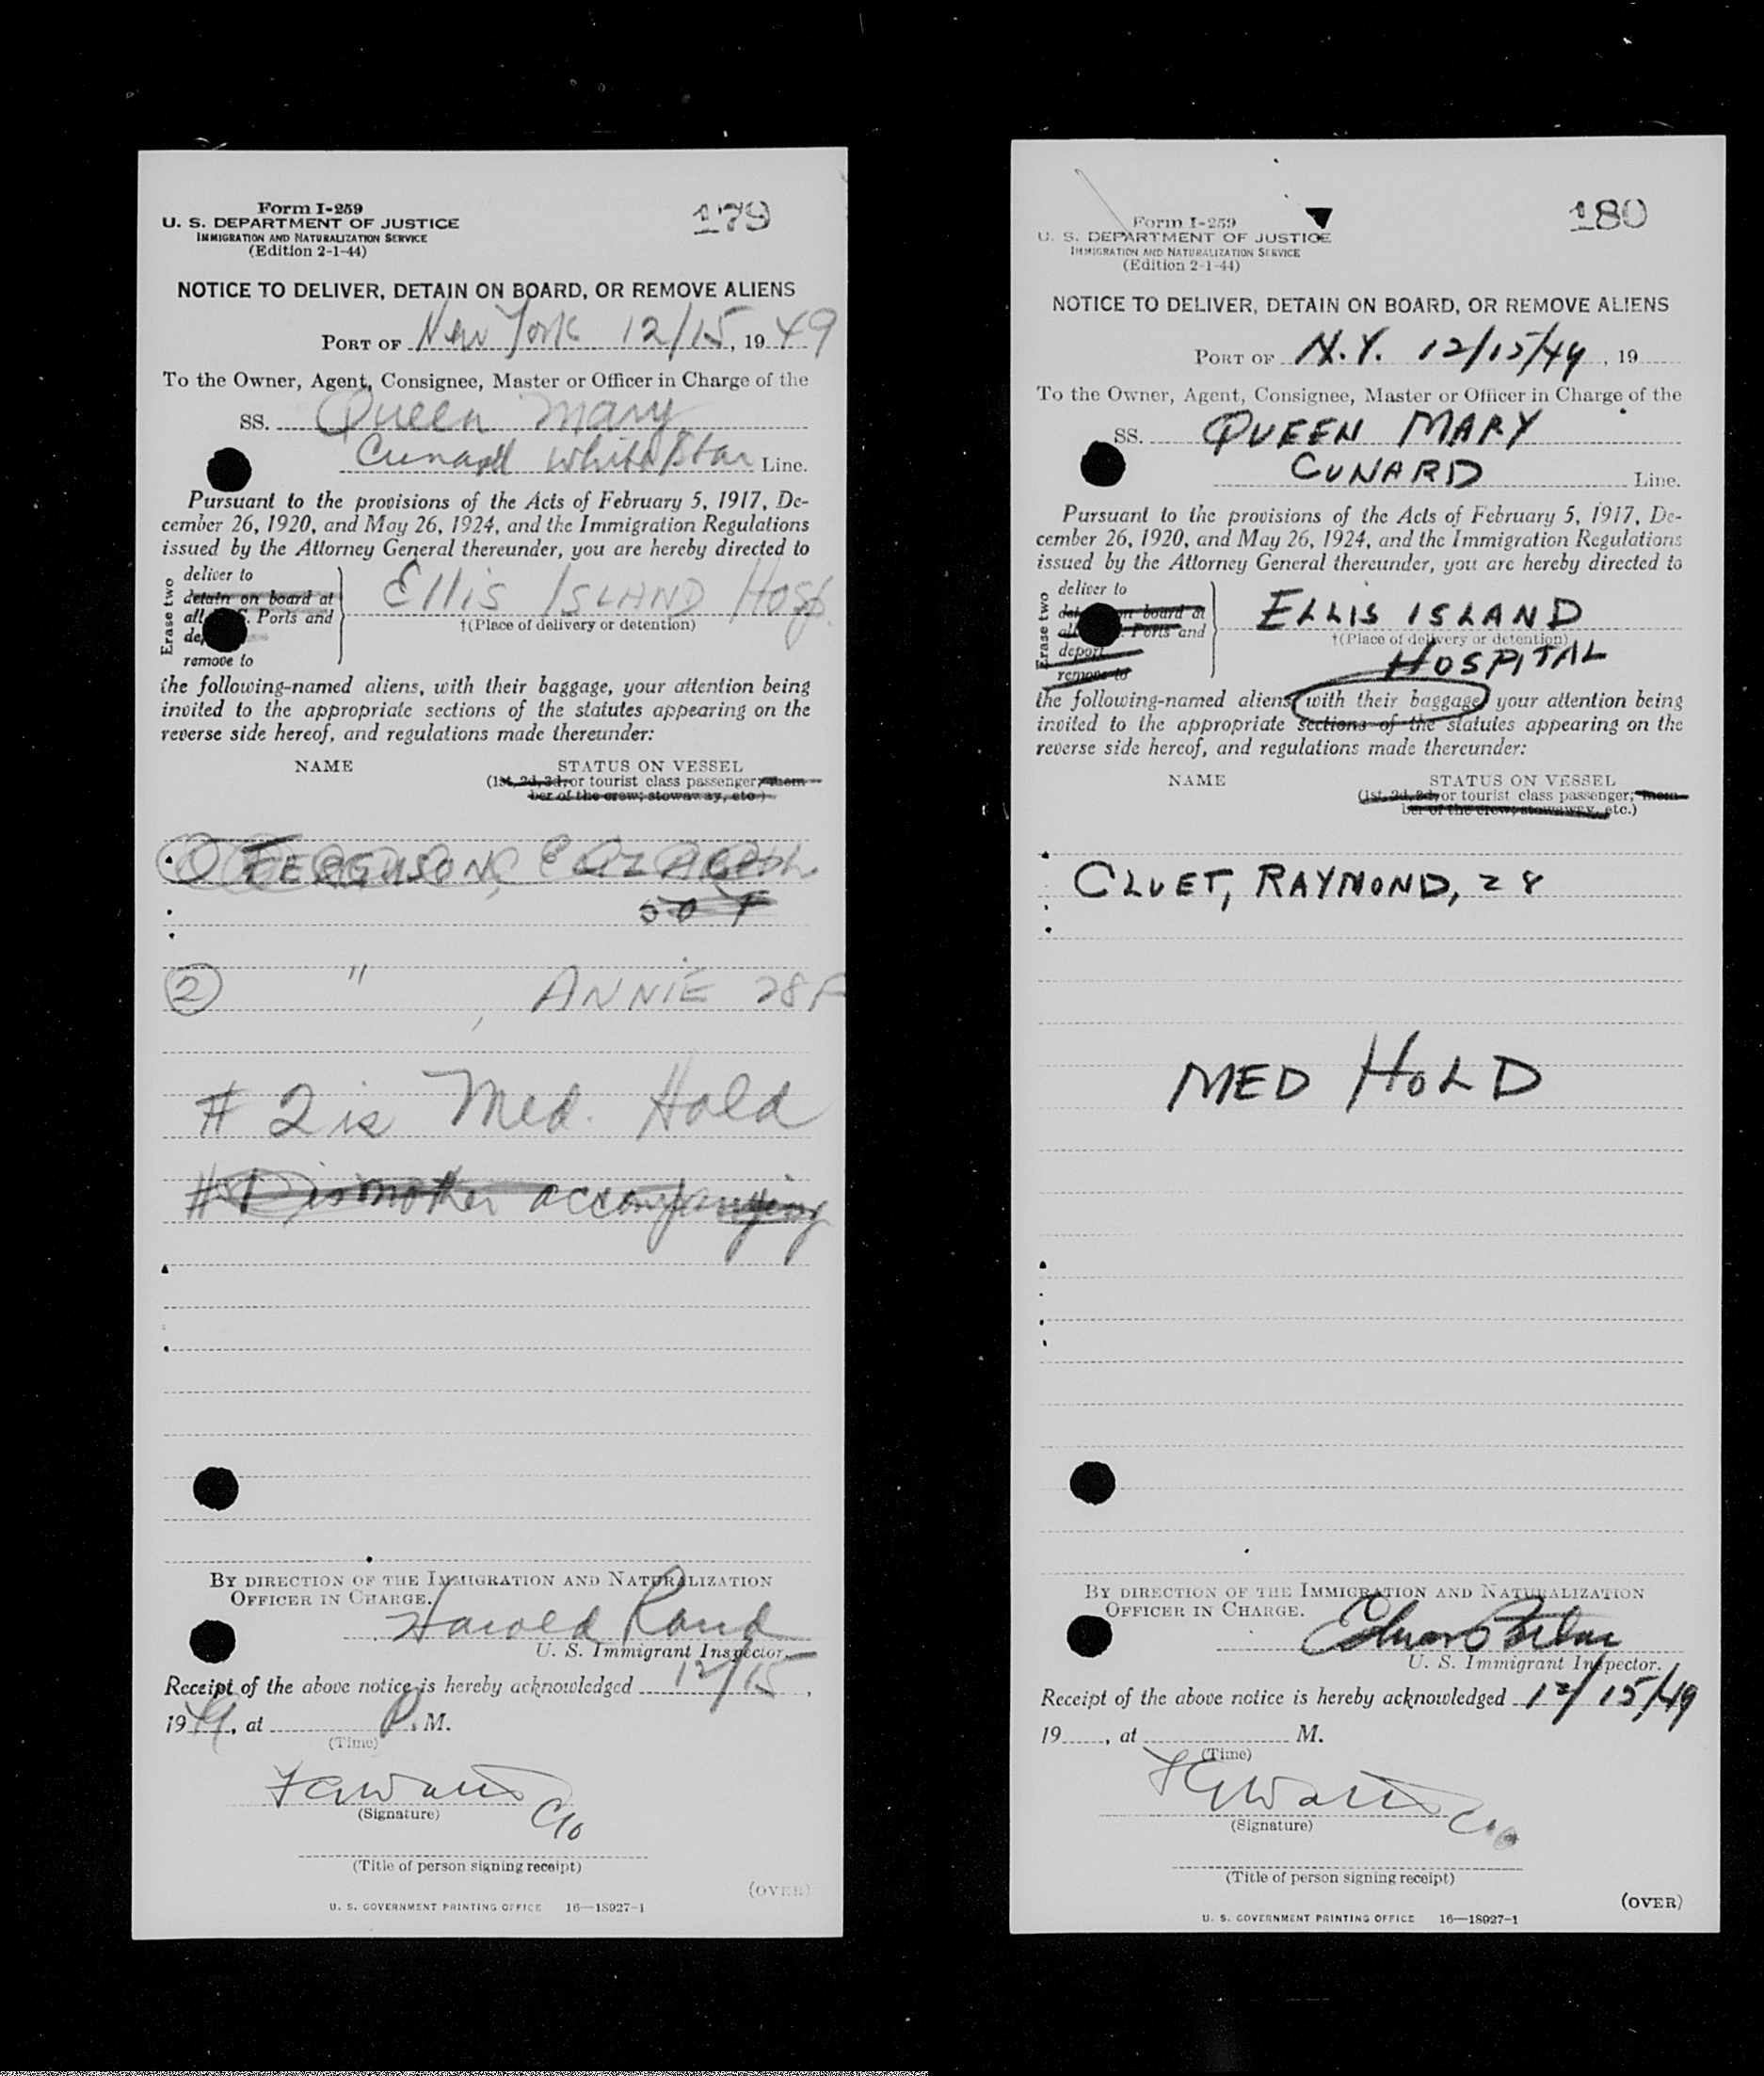 Form I-259
U. S. DEPARTMENT OF JUSTICE
IMMIGRATION AND NATURALIZATION SERVICE
(Edition 2-1-44)
179
NOTICE TO DELIVER, DETAIN ON BOARD, OR REMOVE ALIENS
PORT OF New York 12/15, 1949
To the Owner, Agent, Consignee, Master or Officer in Charge of the
SS. Queen Mary
Cunard White Star Line.
Pursuant to the provisions of the Acts of February 5, 1917, De-
cember 26, 1920, and May 26, 1924, and the Immigration Regulations
issued by the Attorney General thereunder, you are hereby directed to
Erase two
deliver to
detain on board at
all S. Ports and
remove to
ELLIS ISLAND Hosp.
†(Place of delivery or detention)
the following-named aliens, with their baggage, your attention being
invited to the appropriate sections of the statutes appearing on the
reverse side hereof, and regulations made thereunder:
NAME STATUS ON VESSEL
(1st, 2d, 3d, or tourist class passenger; mem-
ber of the crew; stowaway, etc.)
① FERGUSON, ELIZABETH
50 F
② " , ANNIE 28 F
# 2 is Med. Hold
# 1 is mother accompanying
BY DIRECTION OF THE IMMIGRATION AND NATURALIZATION
OFFICER IN CHARGE.
Harold Rand
U. S. Immigrant Inspector.
Receipt of the above notice is hereby acknowledged 12/15,
1949, at P. M.
(Time)
(Signature)
(Title of person signing receipt)
(OVER)
U. S. GOVERNMENT PRINTING OFFICE 16—18927-1
Form I-259
U. S. DEPARTMENT OF JUSTICE
IMMIGRATION AND NATURALIZATION SERVICE
(Edition 2-1-44)
180
NOTICE TO DELIVER, DETAIN ON BOARD, OR REMOVE ALIENS
PORT OF N.Y. 12/15/49, 19
To the Owner, Agent, Consignee, Master or Officer in Charge of the
SS. QUEEN MARY
CUNARD Line.
Pursuant to the provisions of the Acts of February 5, 1917, De-
cember 26, 1920, and May 26, 1924, and the Immigration Regulations
issued by the Attorney General thereunder, you are hereby directed to
Erase two
deliver to
on board at
all Ports and
deport
remove to
ELLIS ISLAND
†(Place of delivery or detention)
HOSPITAL
the following-named aliens, with their baggage, your attention being
invited to the appropriate sections of the statutes appearing on the
reverse side hereof, and regulations made thereunder:
NAME STATUS ON VESSEL
(1st, 2d, 3d, or tourist class passenger; mem-
ber of the crew; stowaway, etc.)
CLUET, RAYMOND, 28
MED HOLD
BY DIRECTION OF THE IMMIGRATION AND NATURALIZATION
OFFICER IN CHARGE.
U. S. Immigrant Inspector.
Receipt of the above notice is hereby acknowledged 12/15/49
19 , at M.
(Time)
(Signature)
(Title of person signing receipt)
(OVER)
U. S. GOVERNMENT PRINTING OFFICE 16—18927-1